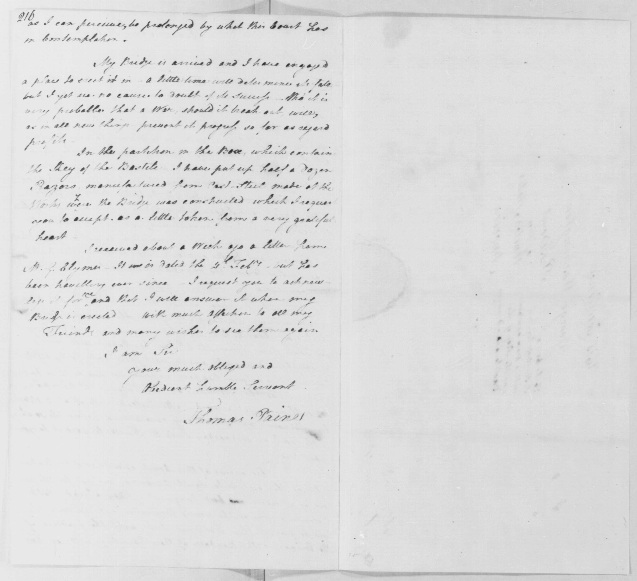 216
as I can perceive, be prolonged by what this Court has
in Contemplation.
My Bridge is arrived and I have engaged
a place to erect it in - a little time will determine its fate
but I yet see no cause to doubt of its success - tho' it is
very probable that a War, should it break out, will,
as in all new things, prevent its progress so far as regards
profits.
In the partition in the Box, which contains
the Key of the Bastile I have put up half a dozen
Razors manufactured from Cast Steel made at the
Works where the Bridge was constructed which I request
you to accept as a little token from a very grateful
heart
I received about a Week ago a letter from
Mr. G. Clymer - It is dated the 4th Feby but has
been travelling ever since - I request you to acknow
it for me and that I will answer it when my
Bridge is erected - with much affection to all my
Friends and many wishes to see them again
I am Sir
your much obliged and
Obedient humble Servant
Thomas Paine